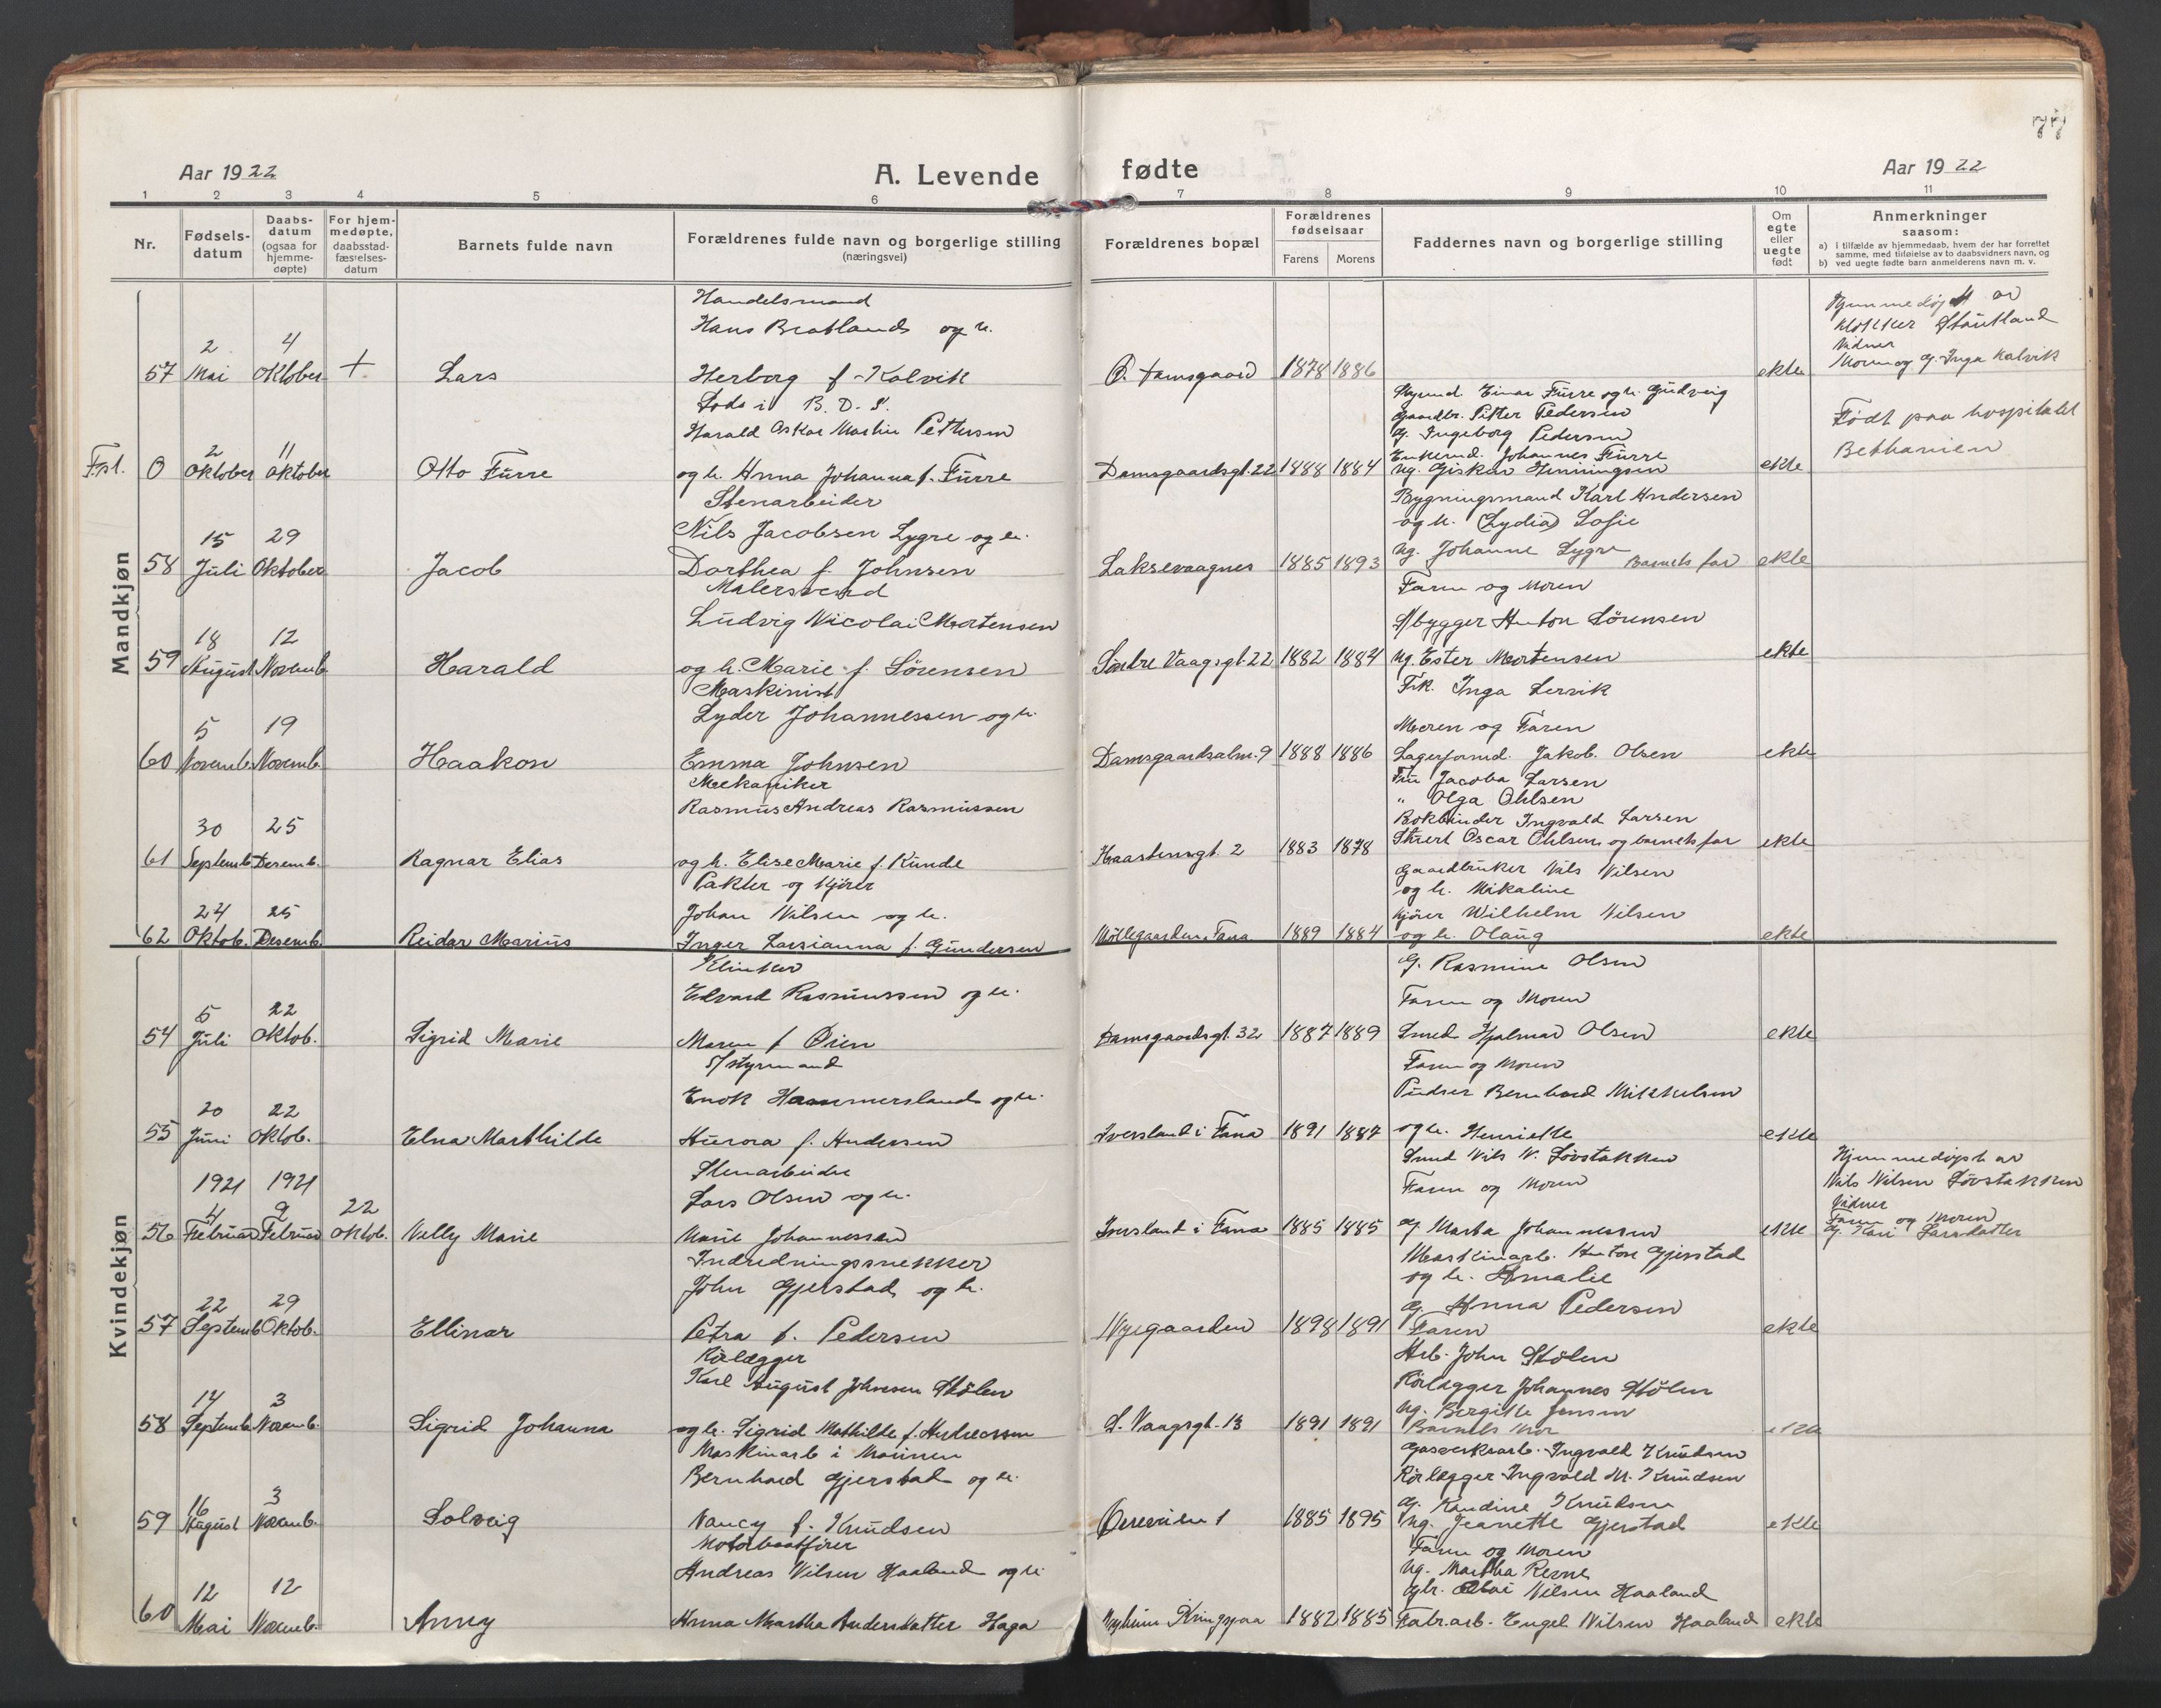 77
Aar 1922
A. Levende
fødte
Aar 1922
1 2 3 4 5 6 7 8 9 10 11
Nr.
Fødsels-
datum
Daabs-
datum
(ogsaa for
hjemme-
døpte)
For hjem-
medøpte,
daabsstad-
fæstelses-
datum
Barnets fulde navn
Forældrenes fulde navn og borgerlige stilling
(næringsvei)
Forældrenes bopæl
Forældrenes
fødselsaar
Farens Morens
Faddernes navn og borgerlige stilling
Om
egte
eller
uegte
født
Anmerkninger
saasom:
a) i tilfælde av hjemmedaab, hvem der har forrettet
samme, med tilføielse av to daabsvidners navn, og
b) ved uegte fødte barn anmelderens navn m. v.
Mandkjøn
57
2
Mai
4
Oktober
+
Lars
Handelsmand
Hans Bratland og h.
Herborg f. Kalvik
Ø. Damsgaard
1878 1886
ekte
Hjemmedøpt av
klokker
Vidner
Moren og g. Inga Kalvik
0
2
Oktober
11
Oktober
Otto Furre
Lods i B. D. S.
Harald Oskar Martin Pettersen
og h. Anna Johanna f. Furre
Damsgaardsgt. 22
1888 1884
Styrmd. Einar Furre og h. Gudveig
Gaardbr. Petter Pedersen
g. Ingeborg Pedersen
Enkemd. Johannes Furre
ug. Henningsen
ekte
Født paa hospitalet
Bethanien
58
15
Juli
29
Oktober
Jacob
Stenarbeider
Nils Jacobsen Lygre og h.
Dorthea f. Johnsen
Laksevaagnes
1885 1893
Bygningsmand Karl Andersen
og h. (Lydia) Sofie
ug. Johanne Lygre
Barnets far
ekte
59
18
August
12
Novemb.
Harald
Malersvend
Ludvig Nicolai Mortensen
og h. Marie f. Sørensen
Søndre Vaagsgt. 22
1882 1884
Faren og Moren
S/bygger Anton Sørensen
ug. Ester Mortensen
ekte
60
5
Novemb.
19
Novemb.
Haakon
Maskinist
Lyder Johannessen og h.
Emma Johnsen
Damsgaardsalm. 9
1888 1886
Frk. Inga Lervik
Moren og Faren
Lagerformd. Jakob Olsen
ekte
61
30
Septemb.
25
Desemb.
Ragnar Elias
Mekaniker
Rasmus Andreas Rasmussen
og h. Elise Marie f. Kunde
Haastensgt. 2
1883 1878
Fru Jacoba Larsen
" Olga Ohlsen
Bokbinder Ingvald Larsen
Stuert Oscar Ohlsen og barnets far
ekte
62
24
Oktob.
25
Desemb.
Reidar Marius
Pakter og kjører
Johan Nilsen og h.
Inger Larsianna f. Gundersen
Møllegaarden, Fana
1889 1884
Gaardbruker Nils Nilsen
og h. Mikaline
kjører Wilhelm Nilsen
og h. Olaug
ekte
Kvindekjøn
54
5
Juli
22
Oktob.
Sigrid Marie
Klinker
Edvard Rasmussen og h.
Maren f. Øien
Damsgaardsgt. 32
1887 1889
G. Rasmine Olsen
Faren og Moren
Smed Hjalmar Olsen
ekte
55
20
Juni
22
Oktob.
Elna Marthilde
S/styrmand
Enok Hammersland og h.
Aurora f. Andersen
Iversland i Fana
1891 1887
Faren og Moren
Pudser Bernhard Mikkelsen
og h. Henriette
ekte
56
1921
4
Februar
1921
9
Februar
22
Oktob.
Nelly Marie
Stenarbeider
Lars Olsen og h.
Marie Johannessen
Iversland i Fana
1885 1885
Smed Nils N. Løvstakken
Faren og Moren
g. Marta Johannessen
ekte
Hjemmedøpt av
Nils Nilsen Løvstakken
Vidner
Faren og Moren
g. Kari Larsdatter
57
22
Septemb.
29
Oktob.
Ellinor
Indredningssnekker
John Gjerstad og h.
Petra f. Pedersen
Nygaarden
1898 1891
Maskinarb. Anton Gjerstad
og h. Amalie
g. Anna Pedersen
Faren
ekte
58
14
Septemb.
3
Novemb.
Sigrid Johanna
Rørlægger
Karl August Johnsen Stølen
og h. Sigrid Mathilde f. Andreassen
S. Vaagsgt. 13
1891 1891
Arb. John Stølen
Rørlægger Johannes Stølen
ug. Bergitte Jensen
Barnets Mor
ekte
59
16
August
3
Novemb.
Solveig
Maskinarb i Marinen
Bernhard Gjerstad og h.
Nancy f. Knudsen
1885 1895
Gasverksarb. Ingvald Knudsen
Rørlægger Ingvald M. Knudsen
g. Knudsen
ug. Jeanette Gjerstad
ekte
60
12
Mai
12
Novemb.
Anny
Motorbaatfører
Andreas Nilsen Haaland og h.
Anna Martha Andersdatter Haga
Kringsjaa
1882 1885
Faren og Moren
ug. Martha
Nilsen Haaland
Fabr. arb. Engel Nilsen Haaland
ekte